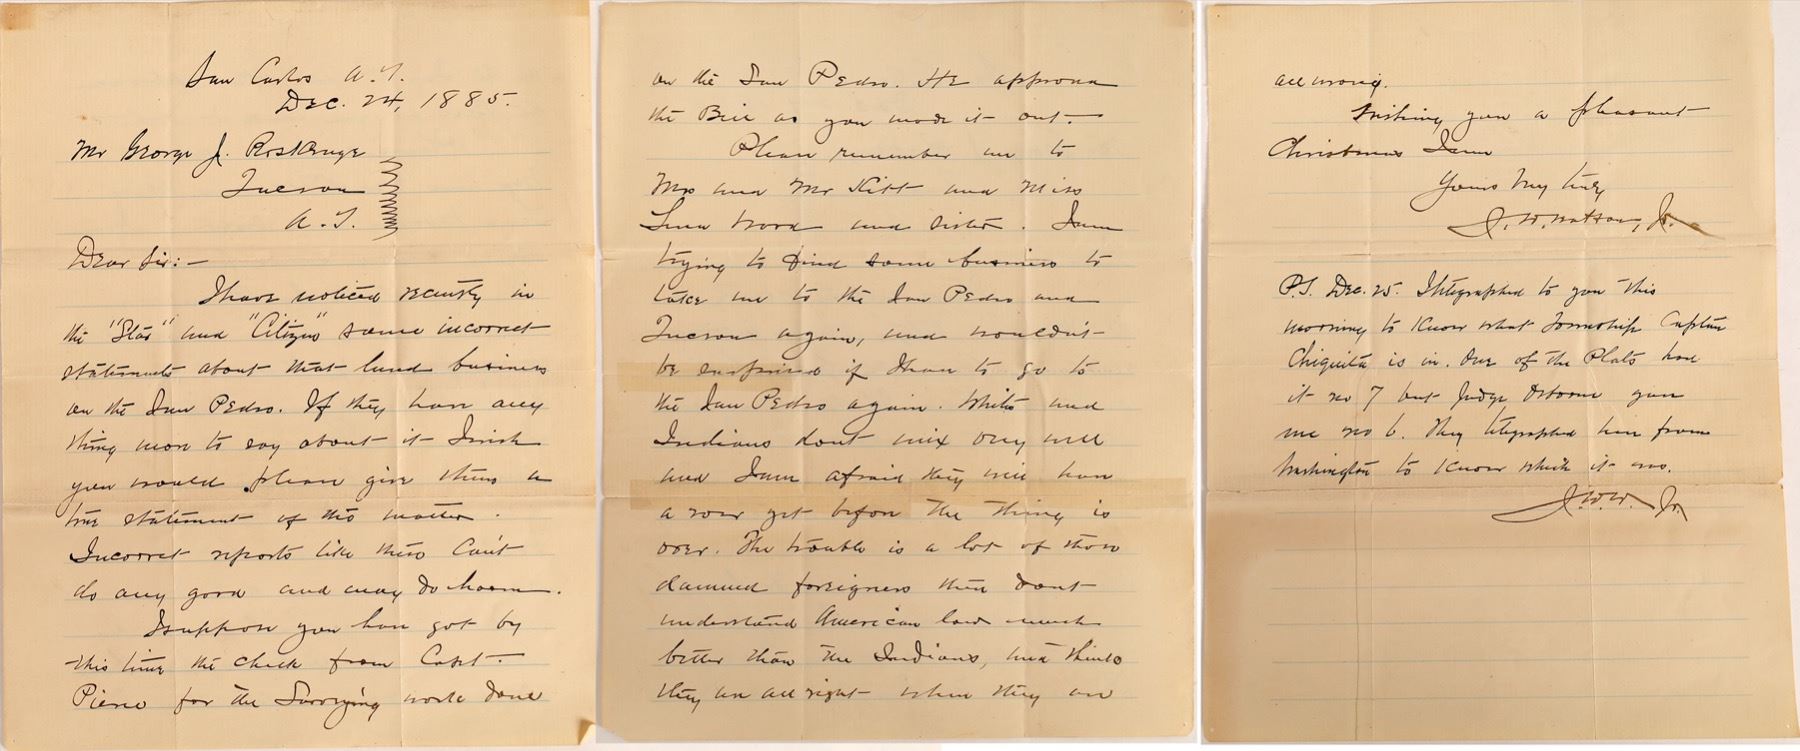 San Carlos A.T.
Dec. 24, 1885.
Mr George J. Roskruge
Tucson
A.T.
Dear Sir:—
I have noticed recently in
the "Star" and "Citizen" some incorrect
statements about that land business
on the San Pedro. If they have any
thing more to say about it I wish
you would please give them a
true statement of the matter.
Incorrect reports like these can't
do any good and may do harm.
I suppose you have got by
this time the check from Capt.
Pierce for the Surveying work done
on the San Pedro. He approved
the Bill as you made it out.
Please remember me to
Mrs and Mr Kitt and Miss
Lena Wood and sister. I am
trying to find some business to
take me to the San Pedro and
Tucson again, and wouldn't
be surprised if I have to go to
the San Pedro again. Whites and
Indians dont mix very well
and I am afraid they will have
a row yet before the thing is
over. The trouble is a lot of those
damned foreigners there dont
understand American law much
better than the Indians, and think
they are all right when they are
all wrong.
Wishing you a pleasant
Christmas I am
Yours very truly
J. W. Watson, Jr.
P.S. Dec. 25. I telegraphed to you this
morning to know what Township Captain
Chiquito is in. One of the Plats has
it no 7 but Judge Osborne gave
me no 6. They telegraphed here from
Washington to know which it was.
J.W.W. Jr.